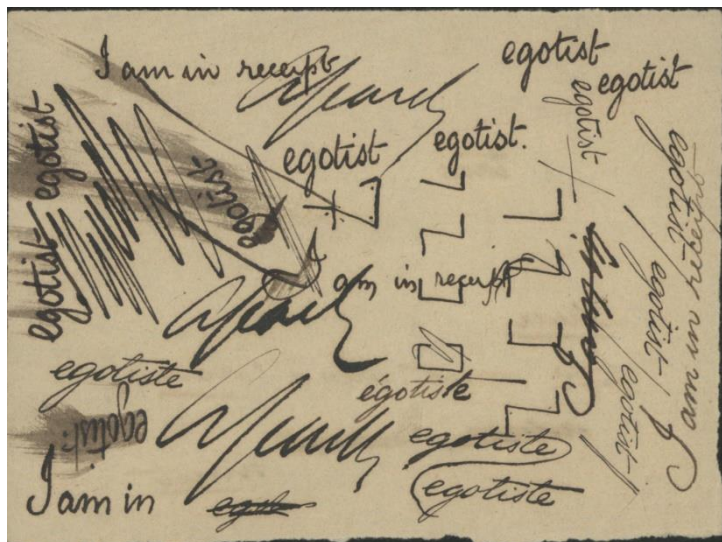 I am in receipt
egotist
egotist
egotist
egotist
egotist.
egotist
egotist
egotist
egotist
I am in receipt
egotist
egotist
egotist
I am in receipt
egotiste
égotiste
egotist.
egotiste
egotiste
I am in